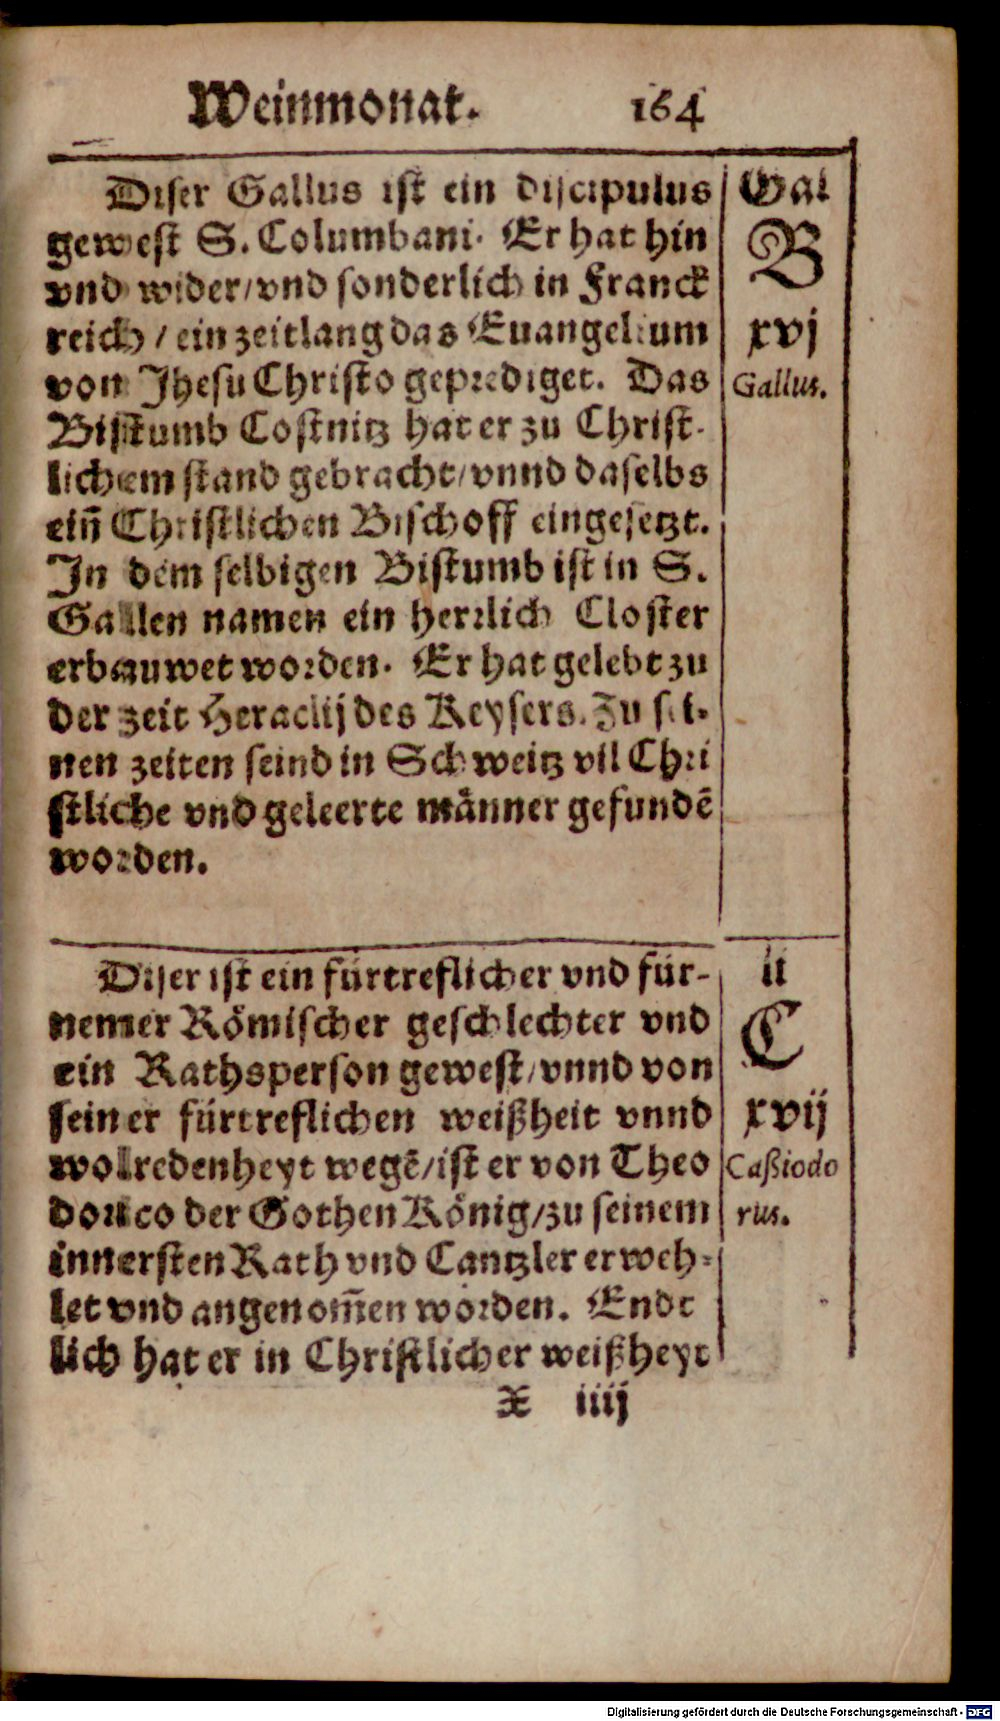 Weinmonat. 164
Diser Gallus ist ein discipulus
gewest S. Columbani. Er hat hin
vnd wider/vnd sonderlich in Franck
reich / ein zeitlang das Euangelium
von Jhesu Christo geprediget. Das
Bistumb Costnitz hat er zu Christ-
lichem stand gebracht/vnnd daselbs
ein̄ Christlichen Bischoff eingesetzt.
In dem selbigen Bistumb ist in S.
Gallen namen ein herrlich Closter
erbauwet worden. Er hat gelebt zu
der zeit Heraclij des Keysers. Zu sei-
nen zeiten seind in Schweitz vil Chri
stliche vnd geleerte männer gefundē
worden.
Gal
B
xvj
Gallus.
Diser ist ein fürtreflicher vnd für-
nemer Römischer geschlechter vnd
ein Rathsperson gewest/vnnd von
seiner fürtreflichen weißheit vnnd
wolredenheyt wegē/ist er von Theo
dorico der Gothen König/zu seinem
innersten Rath vnd Cantzler erweh-
let vnd angenom̄en worden. Endt
lich hat er in Christlicher weißheyt
li
C
xvij
Caßiodo
rus.
X iiij
Digitalisierung gefördert durch die Deutsche Forschungsgemeinschaft - DFG